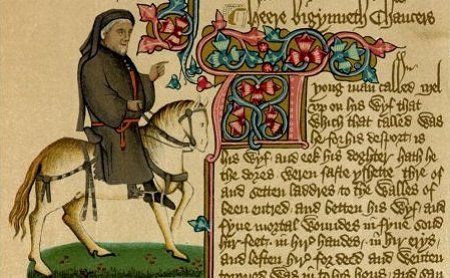 Heere bigynneth Chaucers
A yong man called Mel
vp on his Wyf that
Which that called Was
fo for his desport is
his Wyf and eek his doghter hath he
the dores weren faste yshette thre of
and setten laddres to the Walles of
been entred and betten his Wyf and
fyue mortal Woundes in fyue sond
hir feet in hir handes in hir erys
and leften hir for deed and Wenten
torned Was in to his hous and